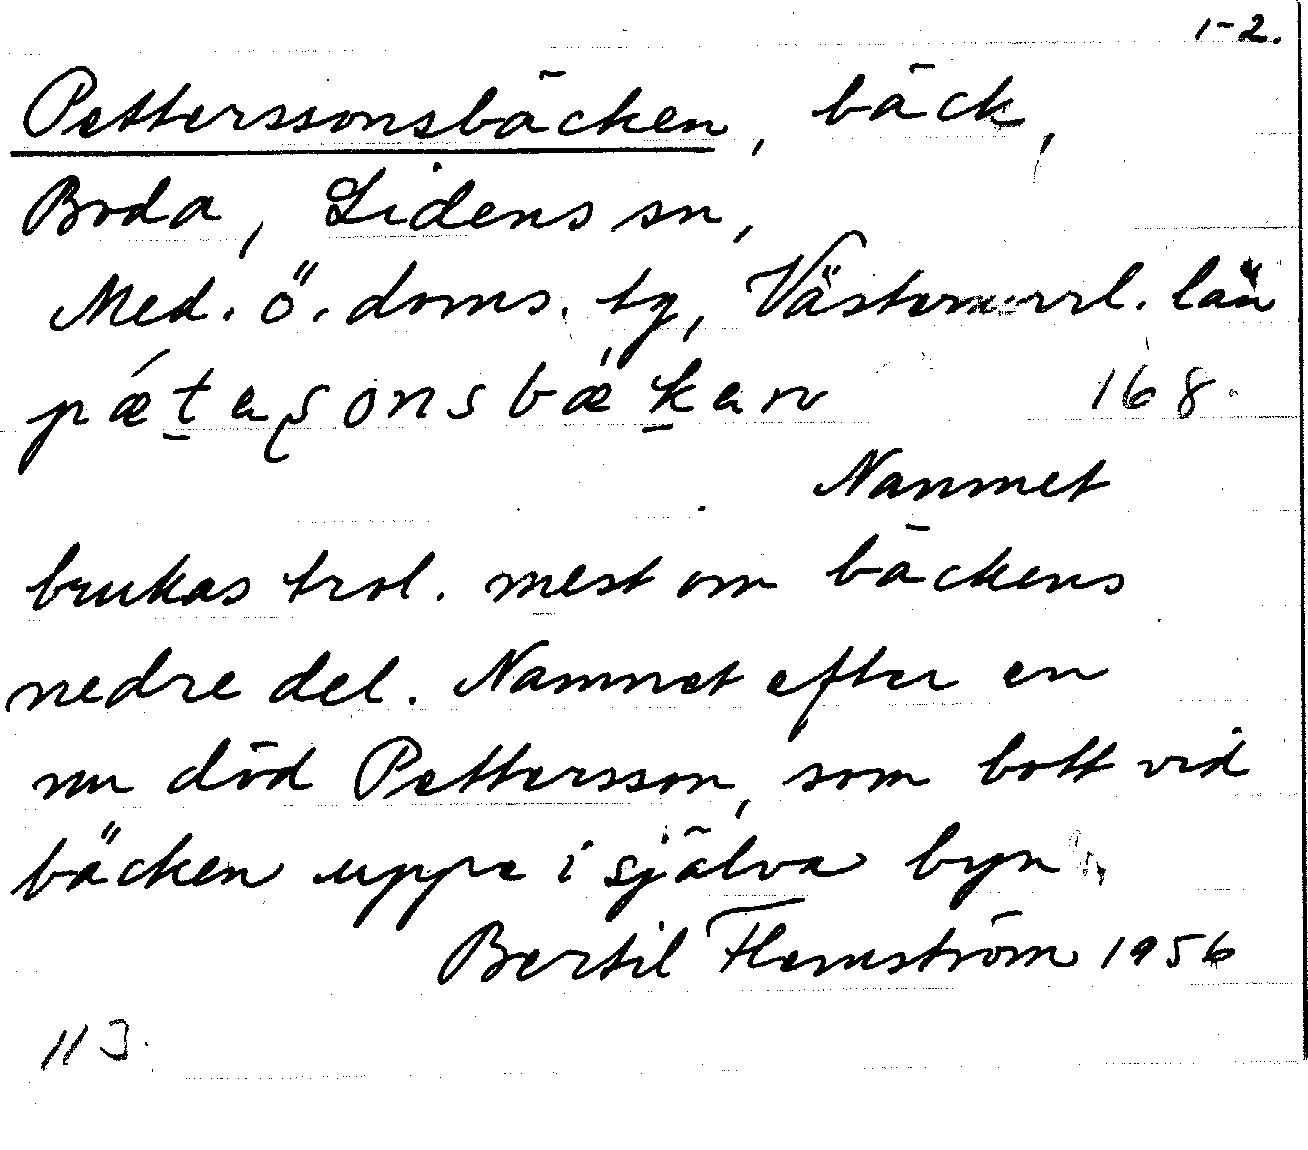 1-2.
Petterssonsbäcken, bäck,
Boda, Lidens sn,
Med. ö. doms. tg, Västernorrl. län
168
Namnet
brukas trol. mest om bäckens
nedre del. Namnet efter en
nu död Pettersson, som bott vid
bäcken uppe i själva byn
Bertil Flemström 1956